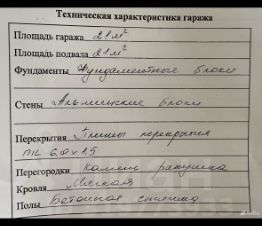 Техническая характеристика гаража
Площадь гаража 21 м²
Площадь подвала 21 м²
Фундаменты Фундаментные блоки
Стены Альминские блоки
Перекрытия Плиты перекрытия
ПК 60х15
Перегородки Камень ракушка
Кровля Мягкая
Полы Бетонная стяжка